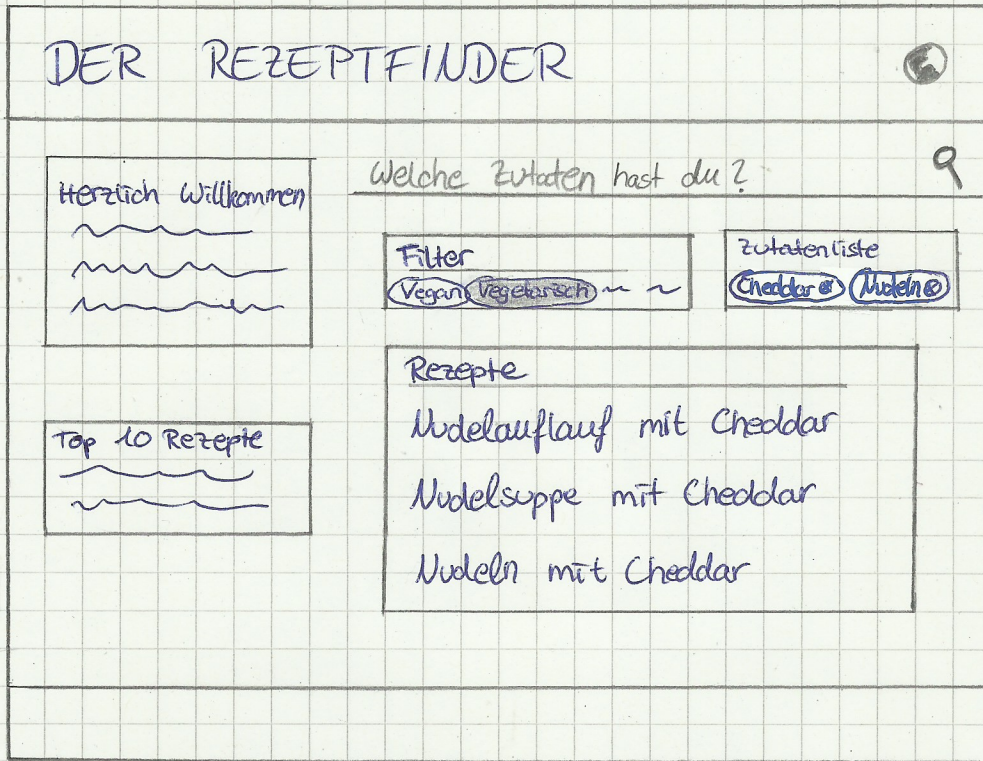 DER REZEPTFINDER
Herzlich Willkommen
Welche Zutaten hast du?
Filter
Vegan Vegetarisch
Zutatenliste
Cheddar Nudeln
Rezepte
Nudelauflauf mit Cheddar
Nudelsuppe mit Cheddar
Nudeln mit Cheddar
Top 10 Rezepte